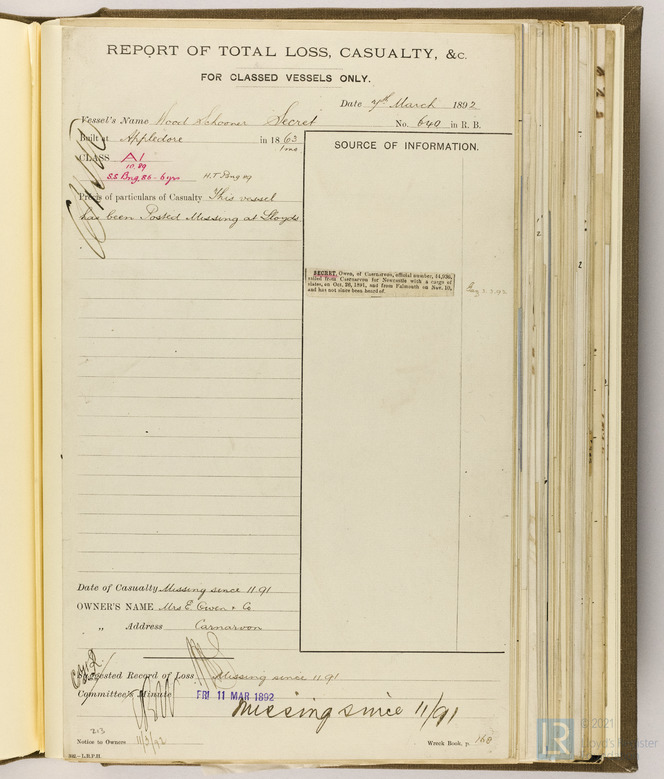 REPORT OF TOTAL LOSS, CASUALTY, &c.
FOR CLASSED VESSELS ONLY.
Date 7th March 1892
Vessel's Name Wood Schooner Secret
No. 640 in R. B.
Built at Appledore in 1863
CLASS A1
10,89
S.S. Bng. 86 - 6 yrs
Précis of particulars of Casualty This vessel
has been Posted Missing at Lloyds
SOURCE OF INFORMATION.
SECRET, Owen, of Carnarvon, official number, 14,930,
sailed from Carnarvon for Newcastle with a cargo of
slates, on Oct. 26, 1891, and from Falmouth on Nov. 10,
and has not since been heard of.
Date of Casualty Missing since 11.91
OWNER'S NAME Mrs E. Owen & Co
„ Address Carnarvon
Suggested Record of Loss Missing since 11.91
Committee's Minute FRI 11 MAR 1892
Missing since 11/91
213
Notice to Owners 11/3/92
Wreck Book, p. 168
L.R.P.H.
LR © 2021
Lloyd's Register